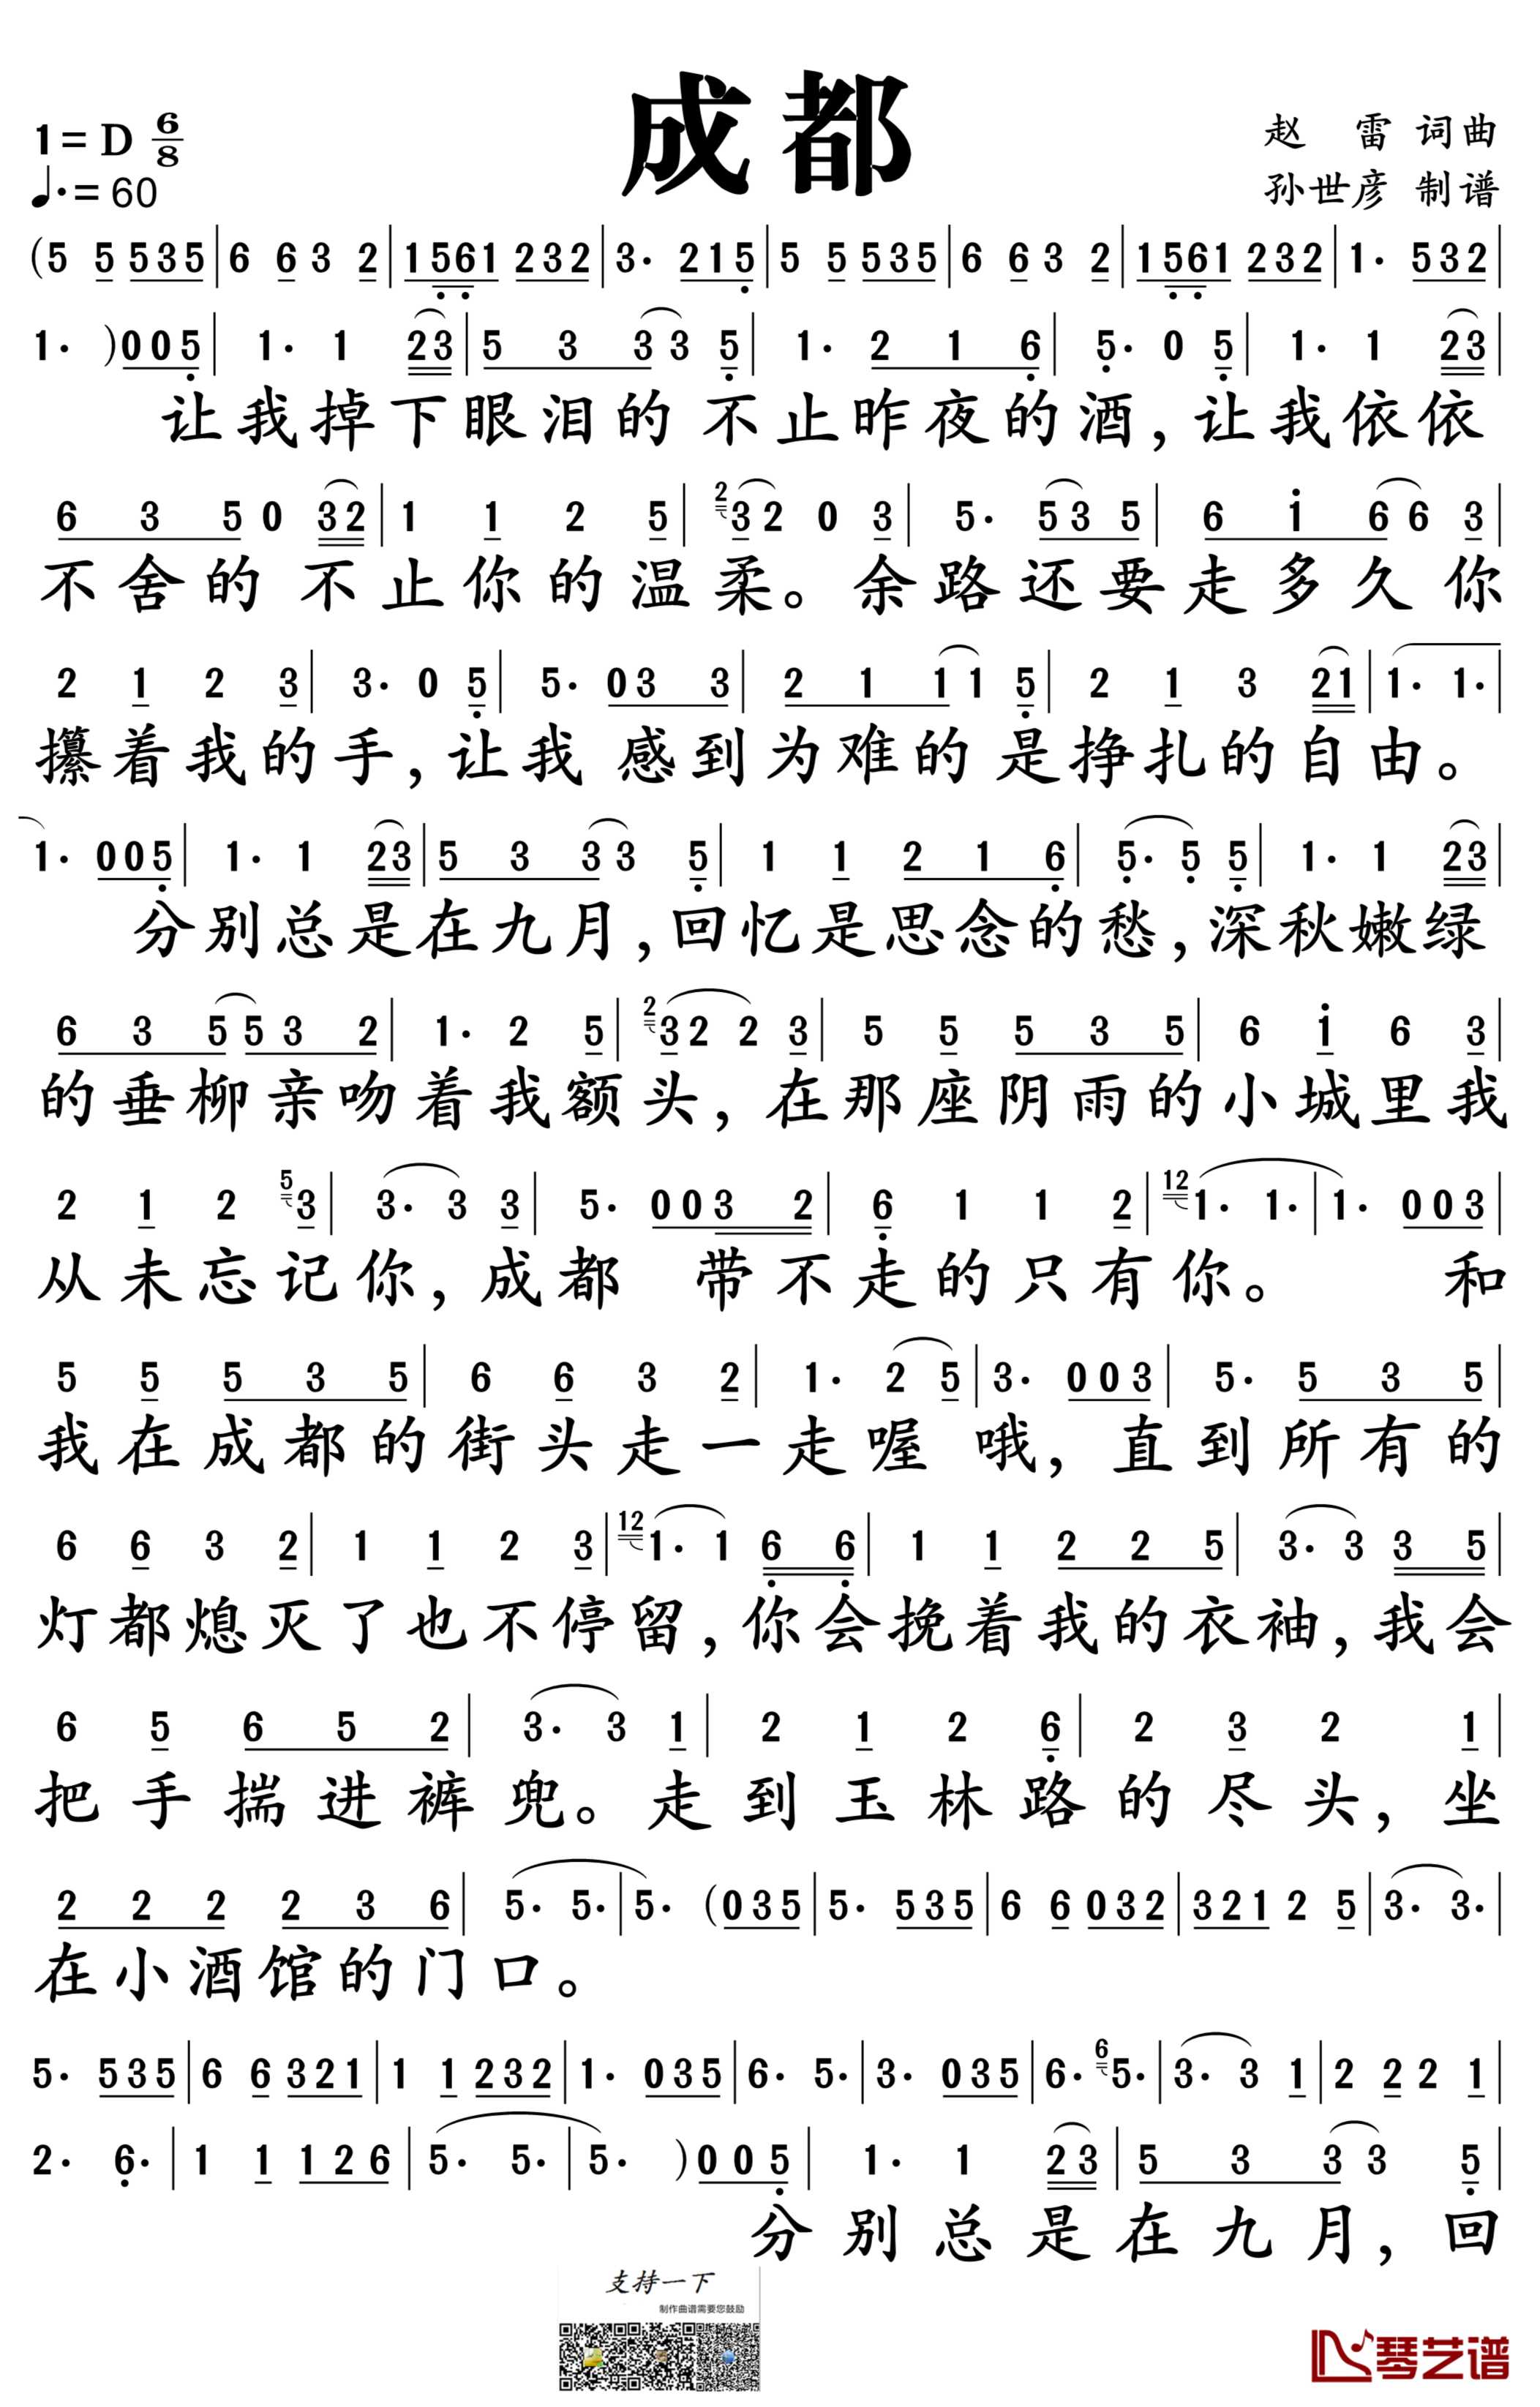 成都
1=D 6/8
♩.=60
赵 雷 词曲
孙世彦 制谱
(5 5 535|6 6 3 2|1561 232|3· 215|5 5 535|6 6 3 2|1561 232|1· 532|
1· )005|1· 1 23|5 3 3 3 5|1· 2 1 6|5· 0 5|1· 1 23|
让我掉下眼泪的 不止昨夜的酒,让我依依
6 3 5 0 32|1 1 2 5|2 3 2 0 3|5· 5 3 5|6 i 6 6 3|
不舍的 不止你的温柔。余路还要走多久 你
2 1 2 3|3· 0 5|5· 03 3|2 1 1 1 5|2 1 3 21|1· 1·|
攥着我的手,让我 感到为难的 是挣扎的自由。
1· 005|1· 1 23|5 3 3 3 5|1 1 2 1 6|5· 5 5|1· 1 23|
分别总是在九月,回忆是思念的愁,深秋嫩绿
6 3 5 5 3 2|1· 2 5|2 3 2 2 3|5 5 5 3 5|6 i 6 3|
的垂柳亲吻着我额头,在那座阴雨的小城里我
2 1 2 5 3|3· 3 3|5· 003 2|6 1 1 2|12 1· 1·|1· 003|
从未忘记你,成都 带不走的只有你。 和
5 5 5 3 5|6 6 3 2|1· 2 5|3· 003|5· 5 3 5|
我在成都的街头走一走喔 哦,直到所有的
6 6 3 2|1 1 2 3|12 1· 1 6 6|1 1 2 2 5|3· 3 3 5|
灯都熄灭了也不停留,你会挽着我的衣袖,我会
6 5 6 5 2|3· 3 1|2 1 2 6|2 3 2 1|
把手揣进裤兜。走到玉林路的尽头,坐
2 2 2 2 3 6|5· 5·|5· (035|5· 535|6 6 032|321 2 5|3· 3·|
在小酒馆的门口。
5· 535|6 6 321|1 1 232|1· 035|6· 5·|3· 035|6· 6 5·|3· 3 1|2 2 2 1|
2· 6·|1 1 126|5· 5·|5· )005|1· 1 23|5 3 3 3 5|
分别总是在九月,回
支持一下
制作曲谱需要您鼓励
琴艺谱